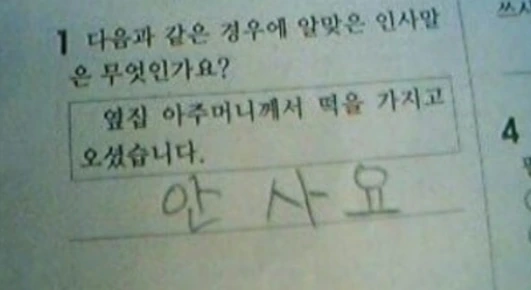 1 다음과 같은 경우에 알맞은 인사말
은 무엇인가요?
옆집 아주머니께서 떡을 가지고
오셨습니다.
안 사 요
4